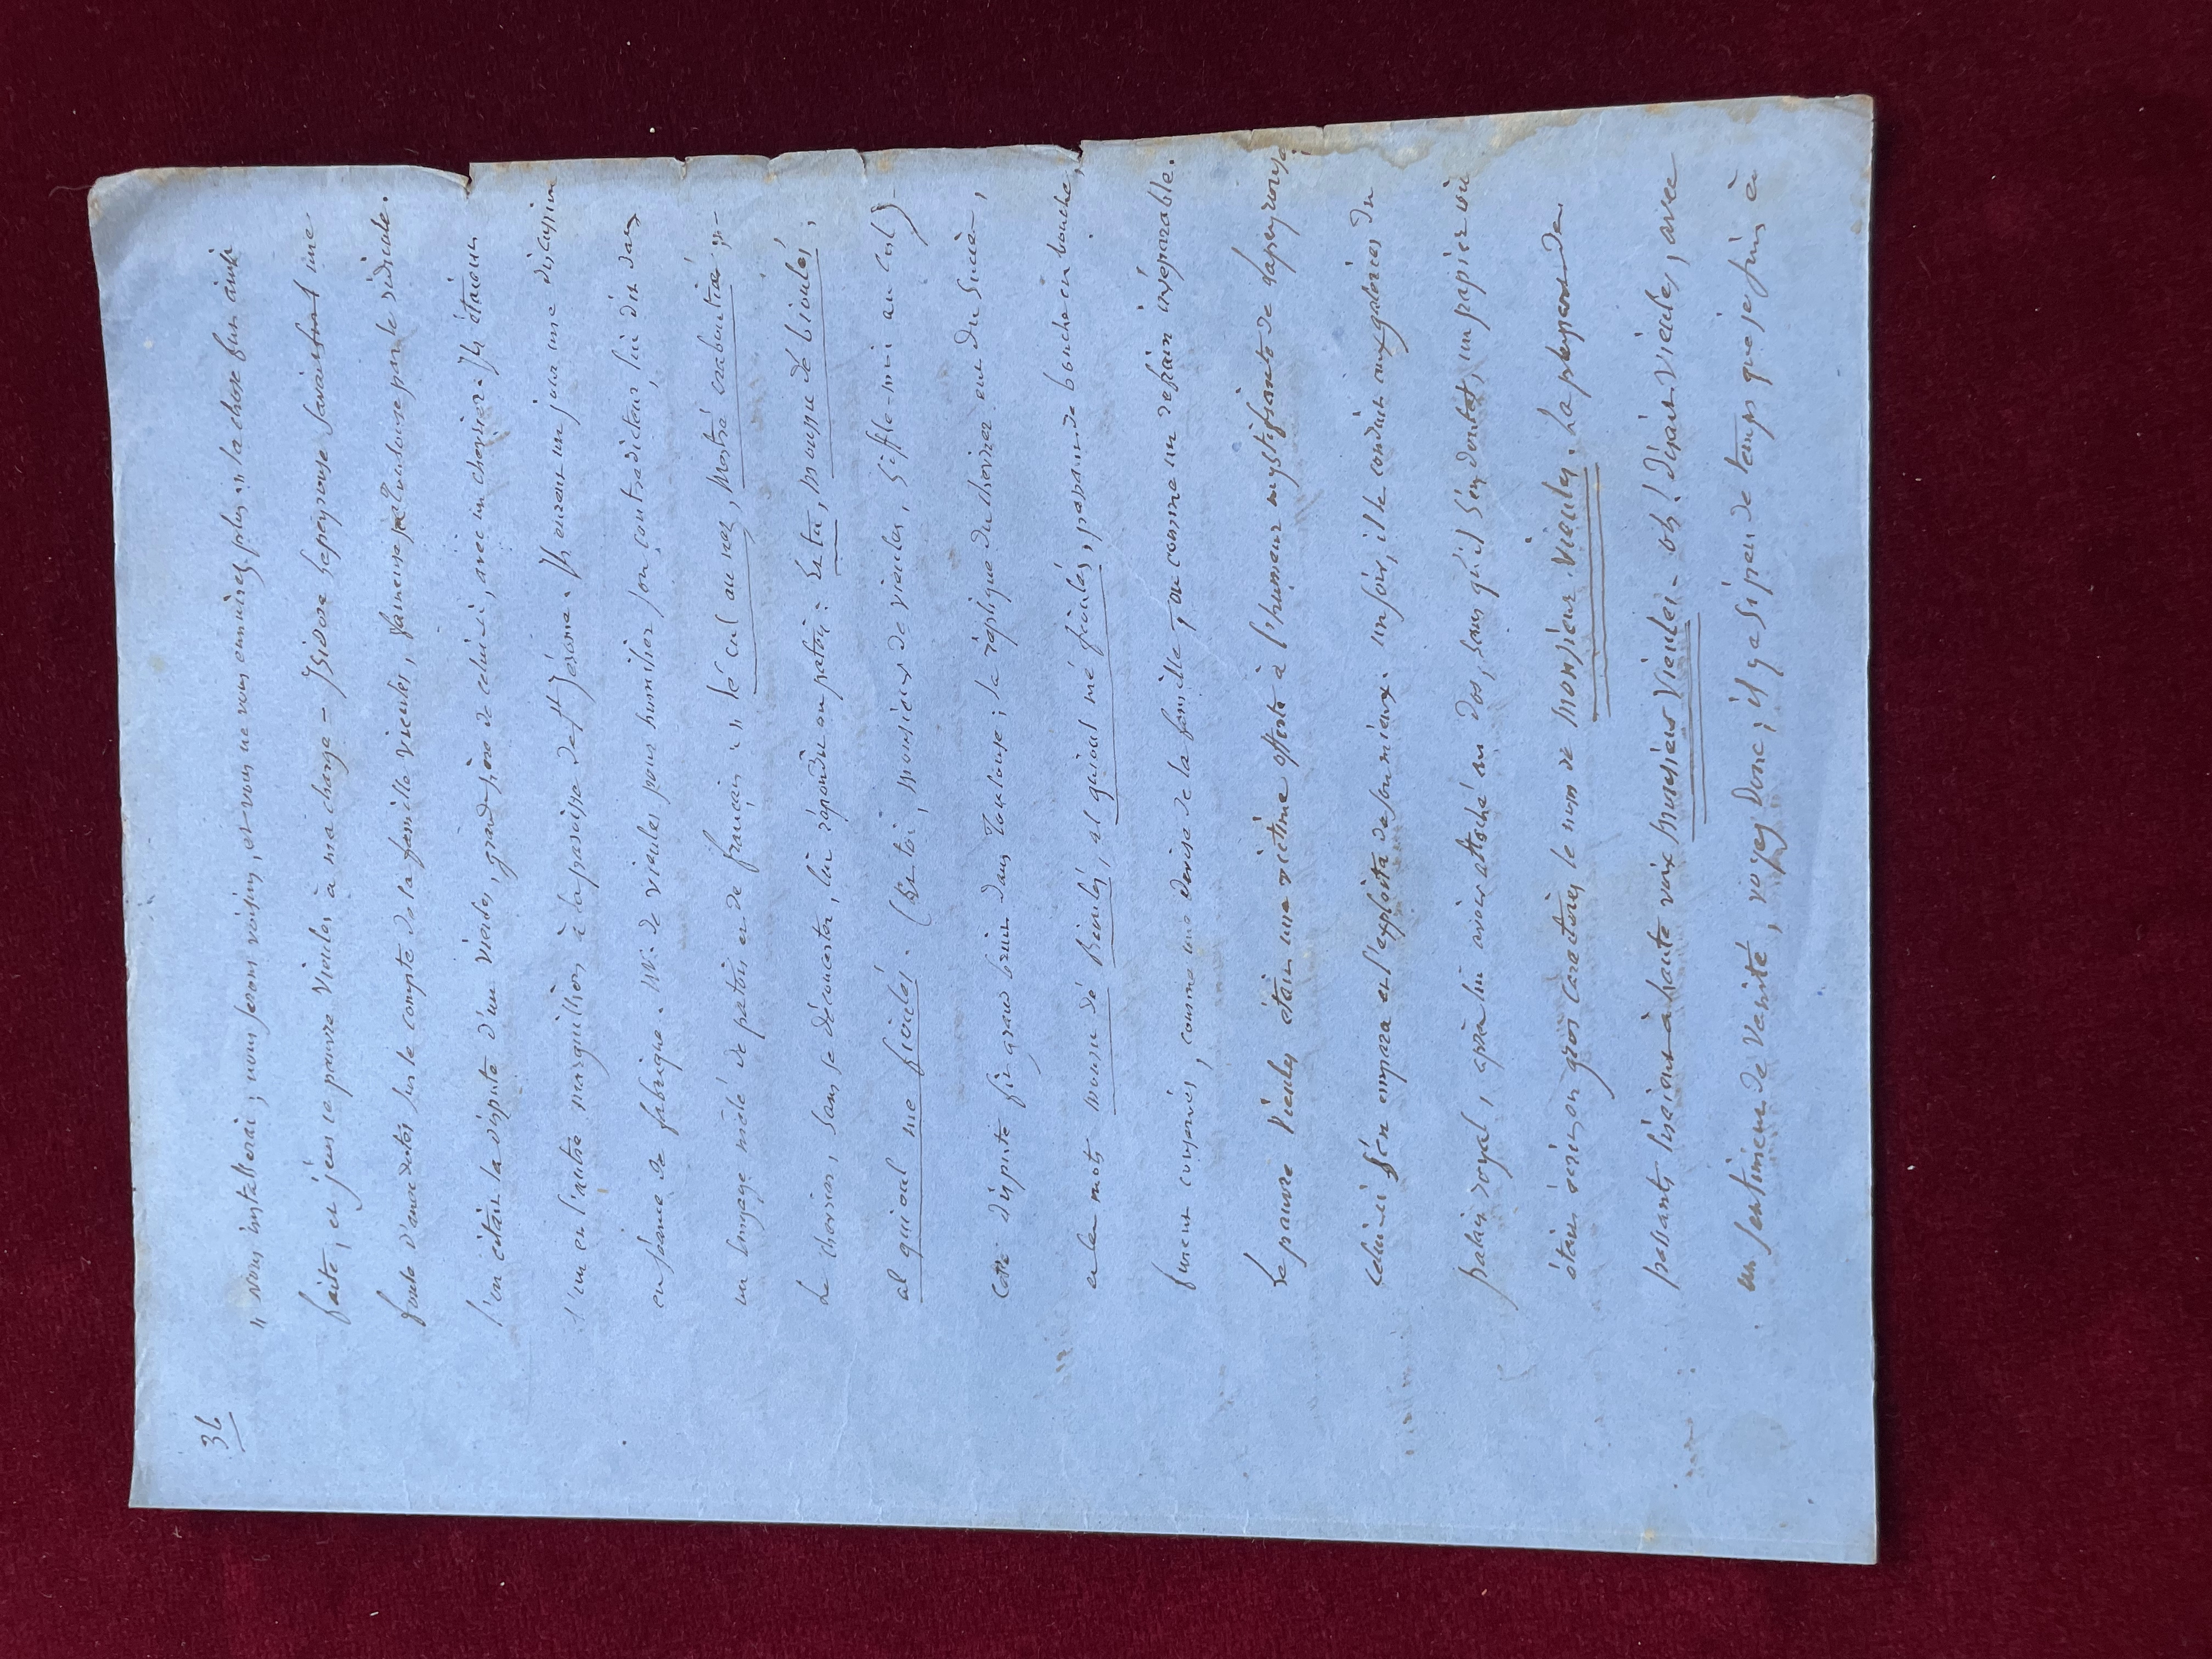 36
" vous installerai ; nous serons voisins, et vous ne vous ennuirez plus. » la chose fut ainsi
faite, et j'eus ce pauvre Vieules à ma charge – Isidore Lapeyrouse savait une
foule d'anecdotes sur le compte de la famille Vieules, fameuse par le ridicule.
l'on citait la dispute d'un Vieules, grand père de celui-ci, avec un choriste. Ils étaient
l'un et l'autre marguilliers à la paroisse de St Jérome. Ils eurent un jour une discussion
en séance de fabrique. Mr. de Vieules pour humilier son contradicteur, lui dit dans
un langage mêlé de patois et de français : " lé cul au nez,
Le , sans se déconcerter, lui répondit en patois : Et tu, moussu dé bioulés,
al quioul me fioulés. (Et toi, monsieur de vieules, siffle-moi au cul)
Cette dispute fit grand bruit dans Toulouse ; la réplique du eut du succès,
et les mots moussu dé Bioulés, al quioul mé fioulés, passant de bouche en bouche,
furent conservés, comme une devise de la famille, ou comme un refrain inséparable.
Le pauvre Vieules était une victime offerte à l'humeur mystifiante de Lapeyrouse
Celui-ci s'en empara et l'exploita de son mieux. un soir, il le conduit aux galeries du
palais royal, après lui avoir attaché au dos, sans qu'il s'en doutat, un papier où
était écrit en gros caractères le nom de Monsieur Vieules.
passants lisaient à haute voix Monsieur Vieules. – oh ! disait Vieules, avec
un sentiment de vanité, voyez donc ; il y a si peu de temps que je suis à